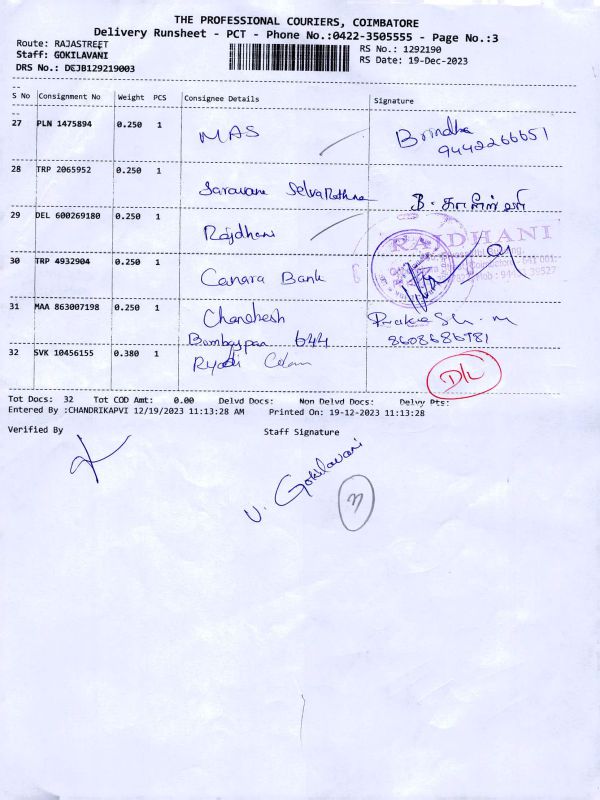 THE PROFESSIONAL COURIERS, COIMBATORE
Delivery Runsheet - PCT - Phone No.:0422-3505555 - Page No.:3
Route: RAJASTREET
RS No.: 1292190
Staff: GOKILAVANI
RS Date: 19-Dec-2023
DRS No.: DCJB129219003
S No Consignment No Weight PCS Consignee Details Signature
27 PLN 1475894 0.250 1 MAS Brindha
9442266651
28 TRP 2065952 0.250 1 Saravana SelvaRathna
29 DEL 600269180 0.250 1 Rajdhani RAJDHANI
30 TRP 4932904 0.250 1 Canara Bank
31 MAA 863007198 0.250 1 Chandhesh Prakash. m
Bombaypan 644 8608686981
32 SVK 10456155 0.380 1 D/L
Tot Docs: 32 Tot COD Amt: 0.00 Delvd Docs: Non Delvd Docs: Delvy Pts:
Entered By :CHANDRIKAPVI 12/19/2023 11:13:28 AM Printed On: 19-12-2023 11:13:28
Verified By Staff Signature
V. Gokilavani